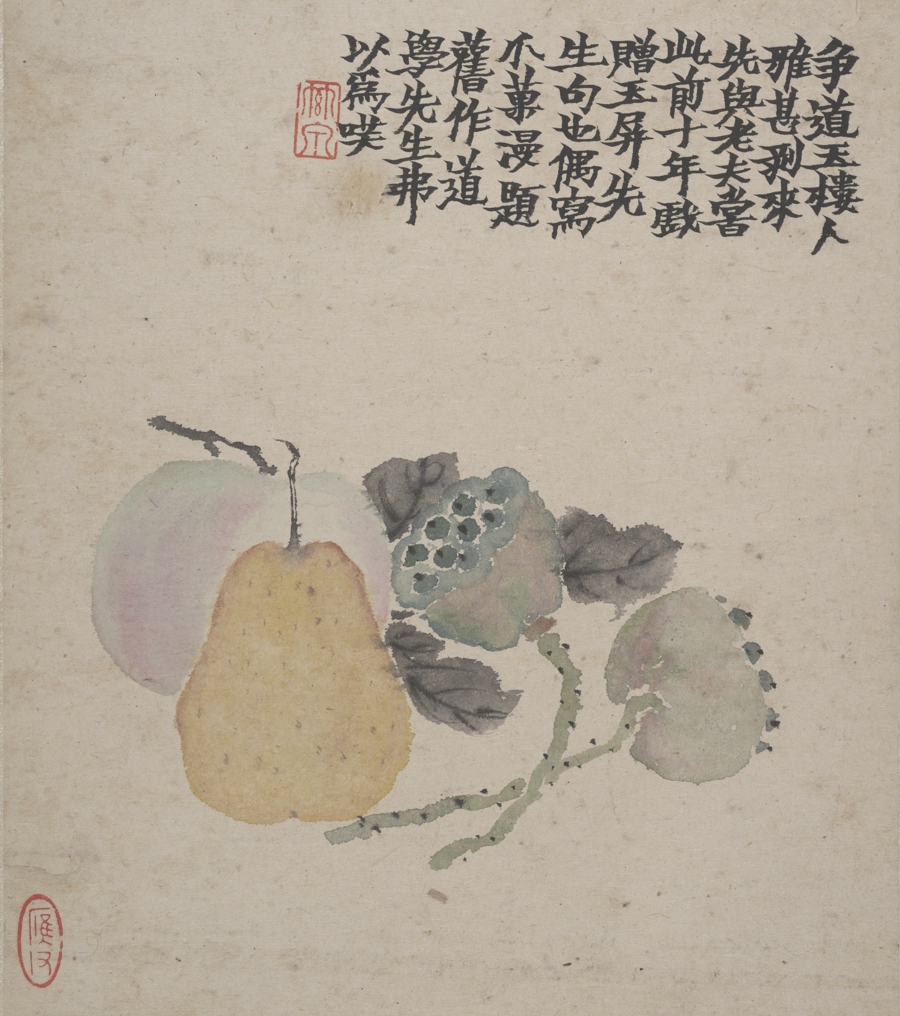 争道玉樓人
雅甚剥來
先與老夫嘗
此前十年戲
贈玉屏先
生句也偶寫
菓漫題
舊作道
學先生弗
以爲咲